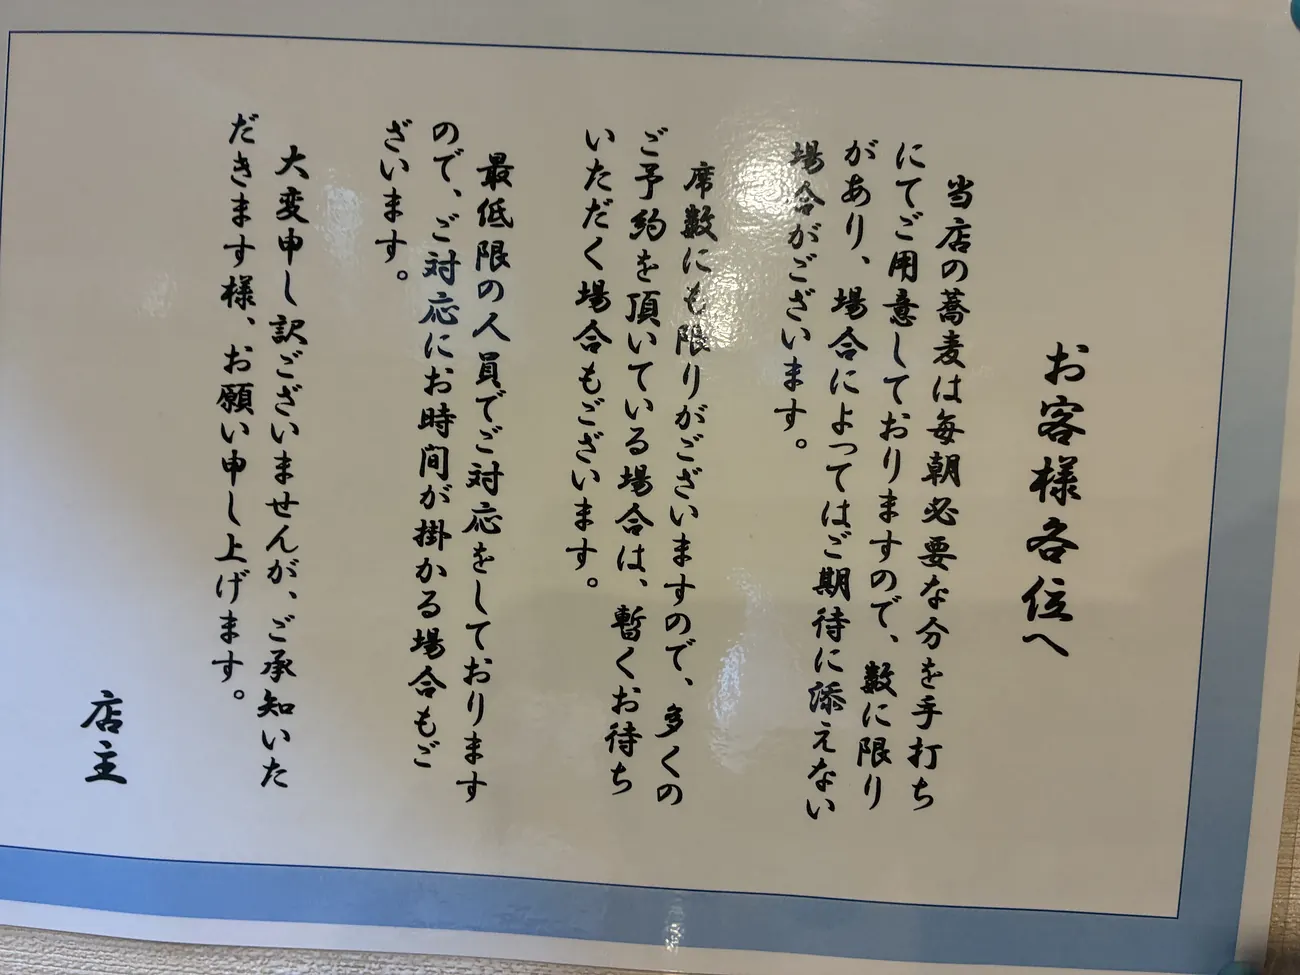 お客様各位へ
当店の蕎麦は毎朝必要な分を手打ち
にてご用意しておりますので、数に限り
があり、場合によってはご期待に添えない
場合がございます。
席数にも限りがございますので、多くの
ご予約を頂いている場合は、暫くお待ち
いただく場合もございます。
最低限の人員でご対応をしております
ので、ご対応にお時間が掛かる場合もご
ざいます。
大変申し訳ございませんが、ご承知いた
だきます様、お願い申し上げます。
店主